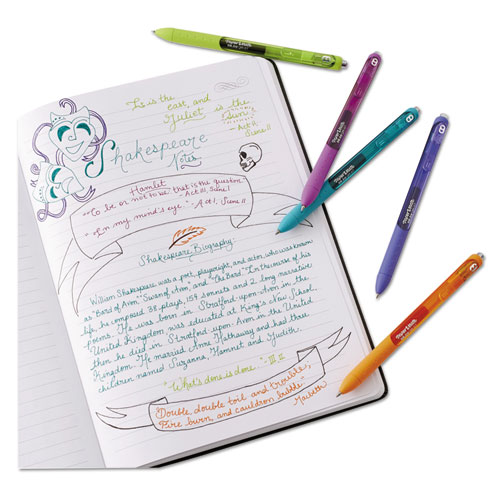 "It is the
east, and
Juliet is the
Sun."
- Act 2,
Scene II
Shakespeare
Notes
Hamlet
"To be or not to be, that is the question."
- Act III, Scene I
"In my mind's eye." - Act 1, Scene II
Shakespeare Biography:
William Shakespeare was a poet, playwright, and actor, who was known
as "Bard of Avon," "Swan of Avon," and "The Bard." In the course of his
life, he composed 38 plays, 154 sonnets and 2 long narrative
poems. He was born in Stratford-upon-Avon in the
United Kingdom, was educated at King's New School,
then he died in Stratford-upon-Avon in the United
Kingdom. He married Anne Hathaway and had three
children named Suzanna, Hamnet and Judith.
"What's done is done." - III. II
"Double, double toil and trouble;
Fire burn, and cauldron bubble."
Macbeth
Paper Mate
Paper Mate
Paper Mate
Paper Mate
Paper Mate